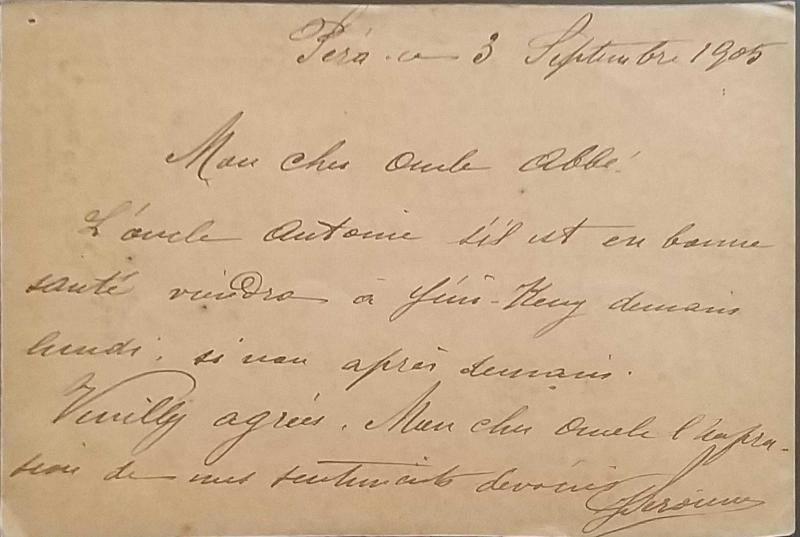 Péra. ce 3 Septembre 1905
Mon cher Oncle Abbé.
L'oncle Antoine s'il est en bonne
santé viendra à Yéni-Keuy demain
lundi, si non après demain.
Veuillez agréer, Mon cher Oncle l'expres-
sion de mes sentiments dévoués